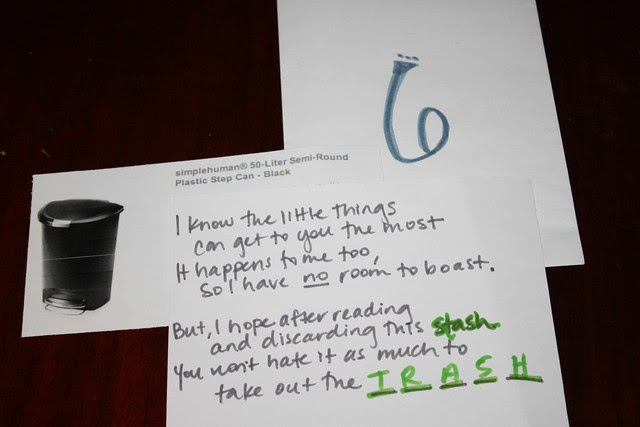 6
simplehuman® 50-Liter Semi-Round
Plastic Step Can - Black
I know the little things
can get to you the most
It happens to me too,
so I have no room to boast.
But, I hope after reading
and discarding this stash
You won't hate it as much to
take out the TRASH